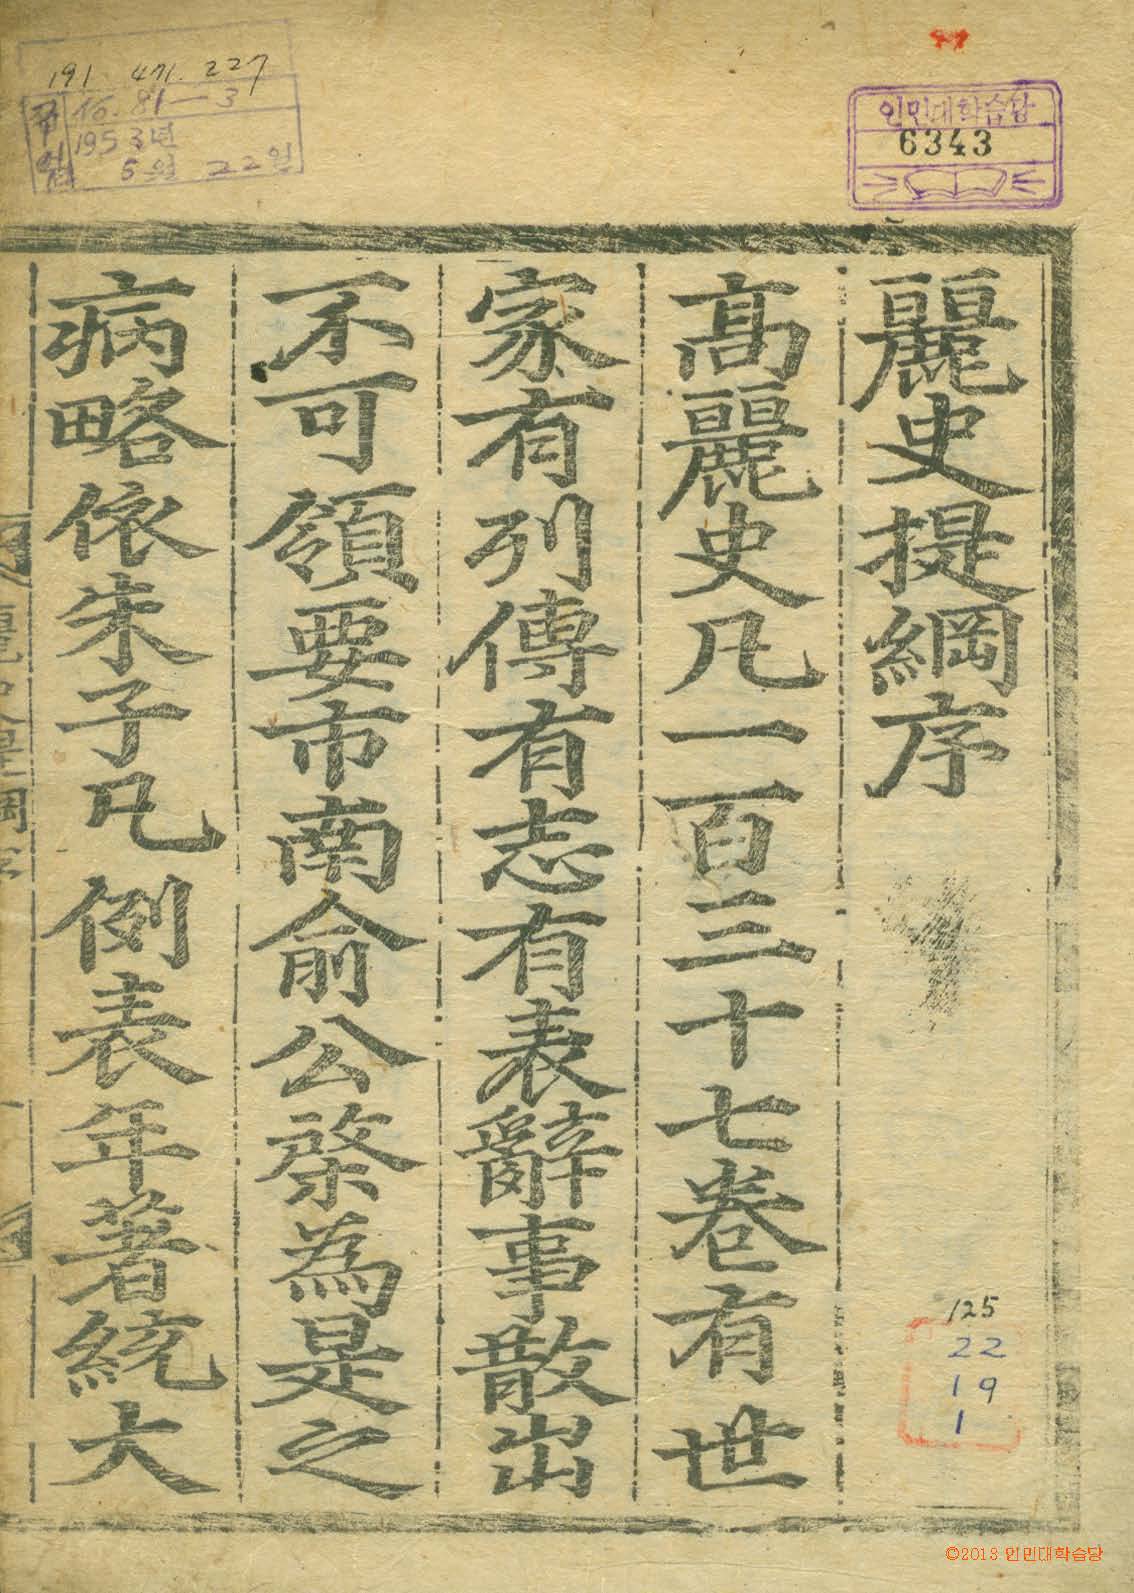 191. 471. 227
16. 81-3
1953년
5월 22일
인민대학습당
6343
麗史提綱序
高麗史凡一百三十七卷有世
家有列傳有志有表辭事散出
不可領要市南俞公棨為是之
病略依朱子凡例表年著統大
125
22
19
1
©2013 인민대학습당